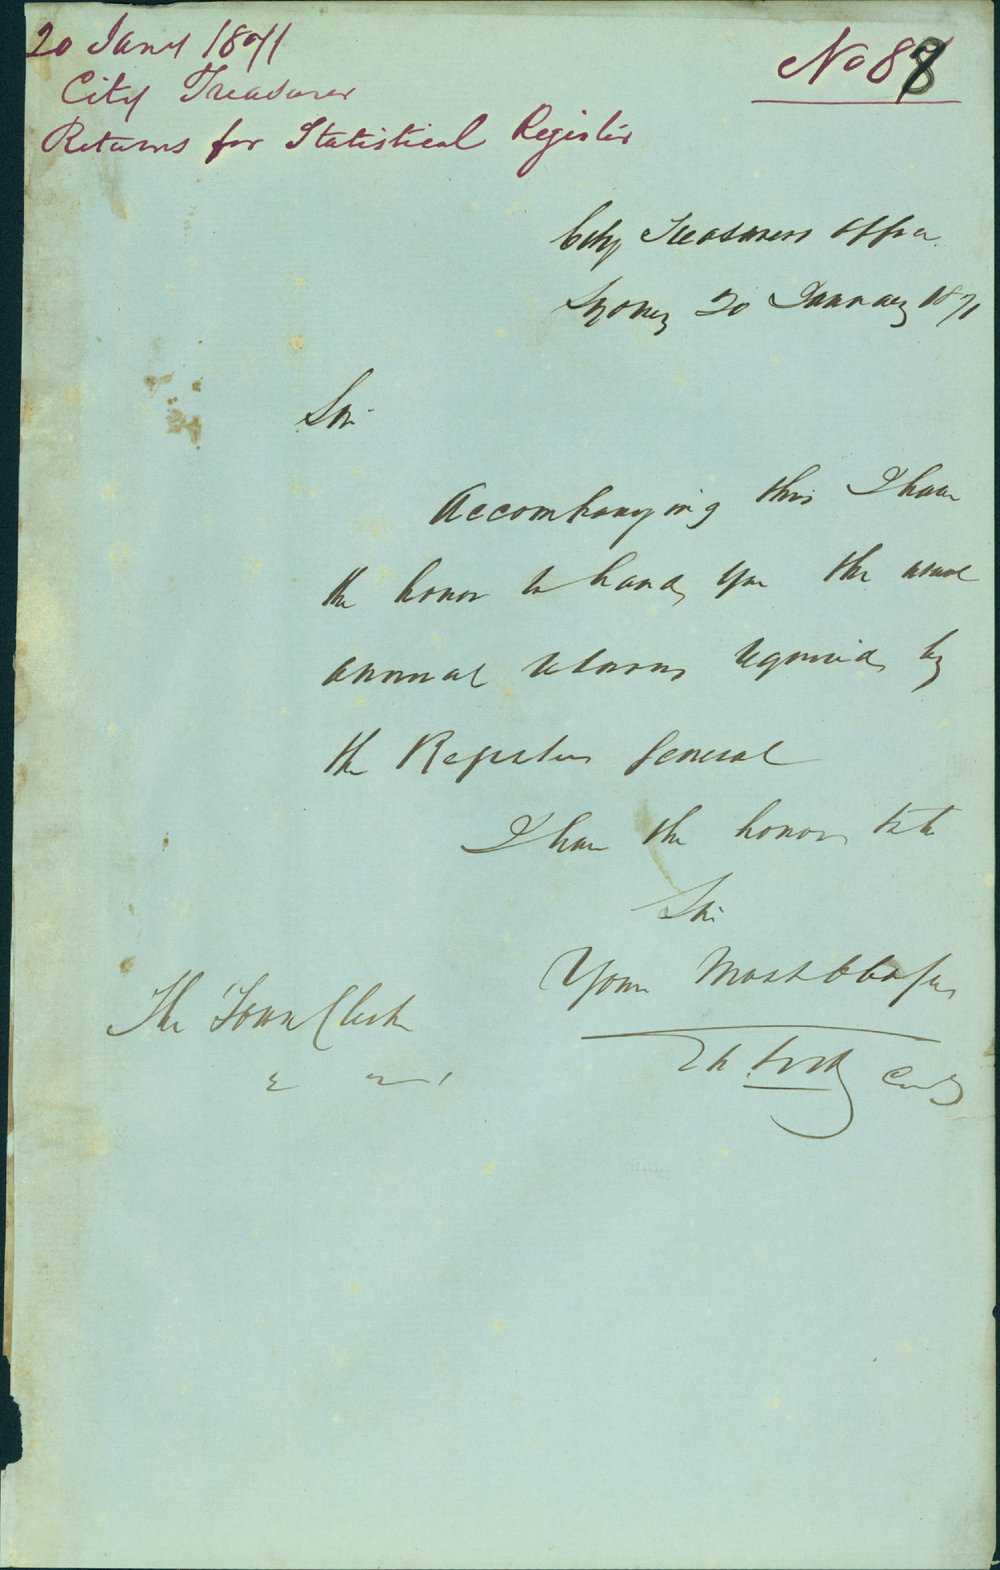 20 Jany 1871
City Treasurer
Returns for Statistical Register
No 88
City Treasurers Office
Sydney 20 January 1871
Sir
Accompanying this I have
the honor to hand you the usual
annual returns required by
the Register General
I have the honor to be
Sir
Your Most Obdt
The Town Clerk